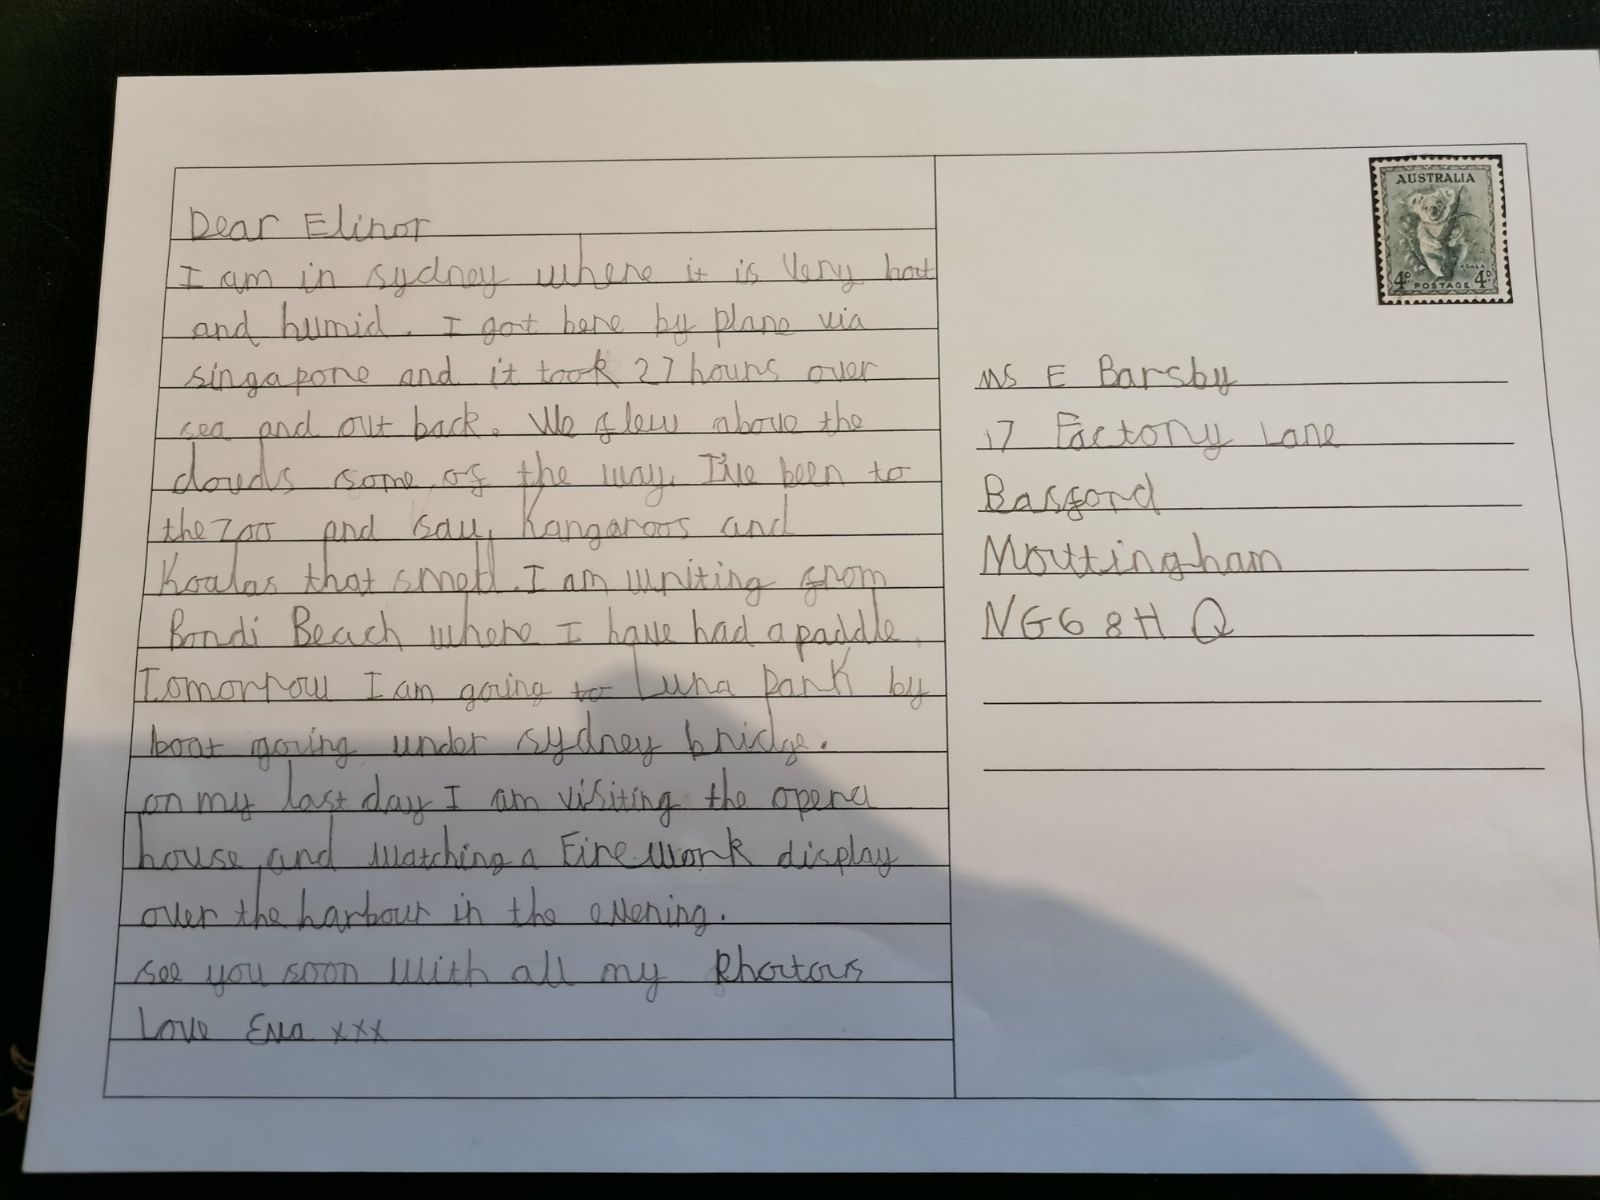 Dear Elinor
I am in sydney where it is very hot
and humid. I got here by plane via
singapore and it took 27 hours over
sea and out back. We flew above the
clouds some of the way. I've been to
the zoo and saw Kangaroos and
Koalas that smell. I am writing from
Bondi Beach where I have had a paddle.
Tomorrow I am going to Luna Park by
boat going under sydney bridge.
on my last day I am visiting the opera
house and watching a Firework display
over the harbour in the evening.
see you soon with all my Photous
Love Eva xxx
AUSTRALIA
KOALA
4D POSTAGE 4D
Ms E Barsby
17 Factory Lane
Basford
Nouttingham
NG6 8HQ